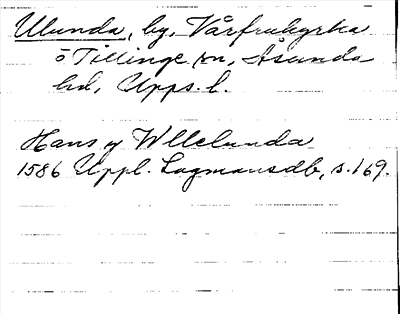 Ulunda, by, Vårfrukyrka
o Tillinge sn, Åsunda
hd, Upps. l.
Hans y Wllelunda
1586 Uppl. Lagmansdb, s. 169.